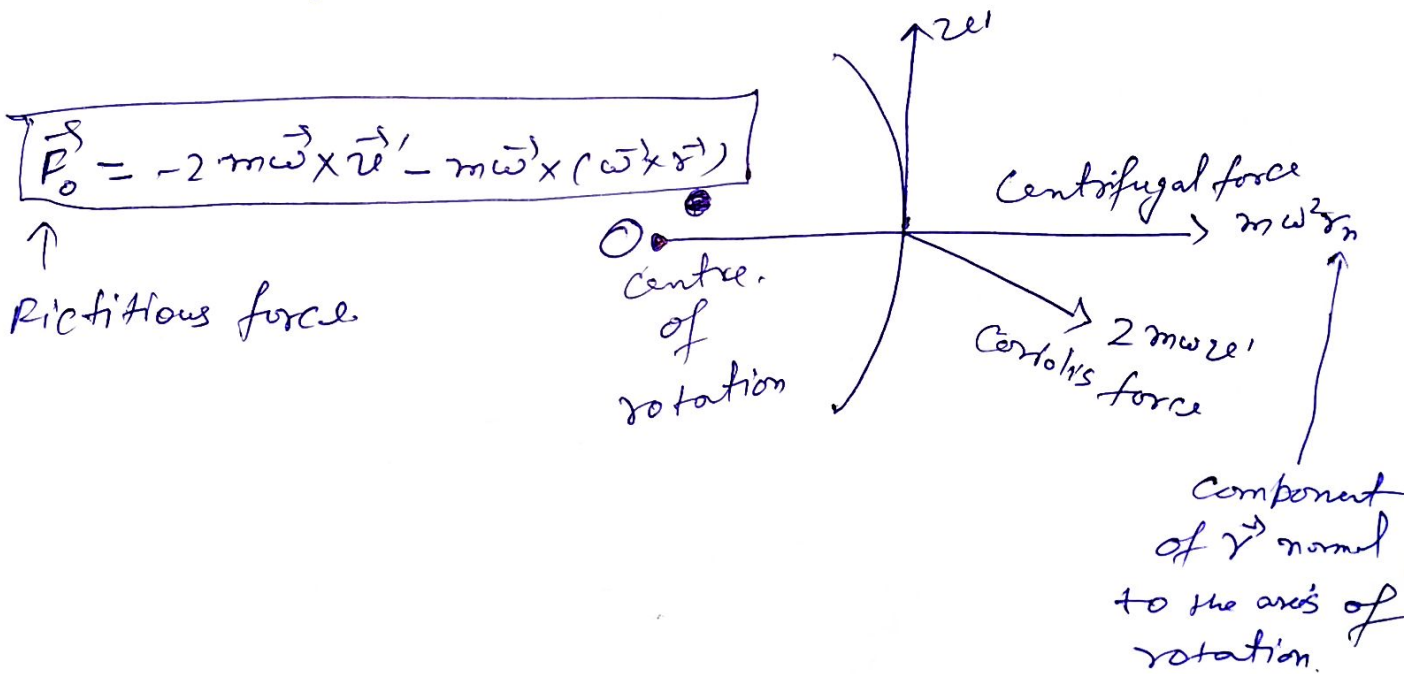 v'
F⃗₀ = -2 mω⃗ × v⃗' - mω⃗ × (ω⃗ × r⃗)
↑
Fictitious force
O
Centre.
of
rotation
Centrifugal force
mω²rₙ
2 mωv'
Coriolis
force
Component
of r⃗ normal
to the axis of
rotation.